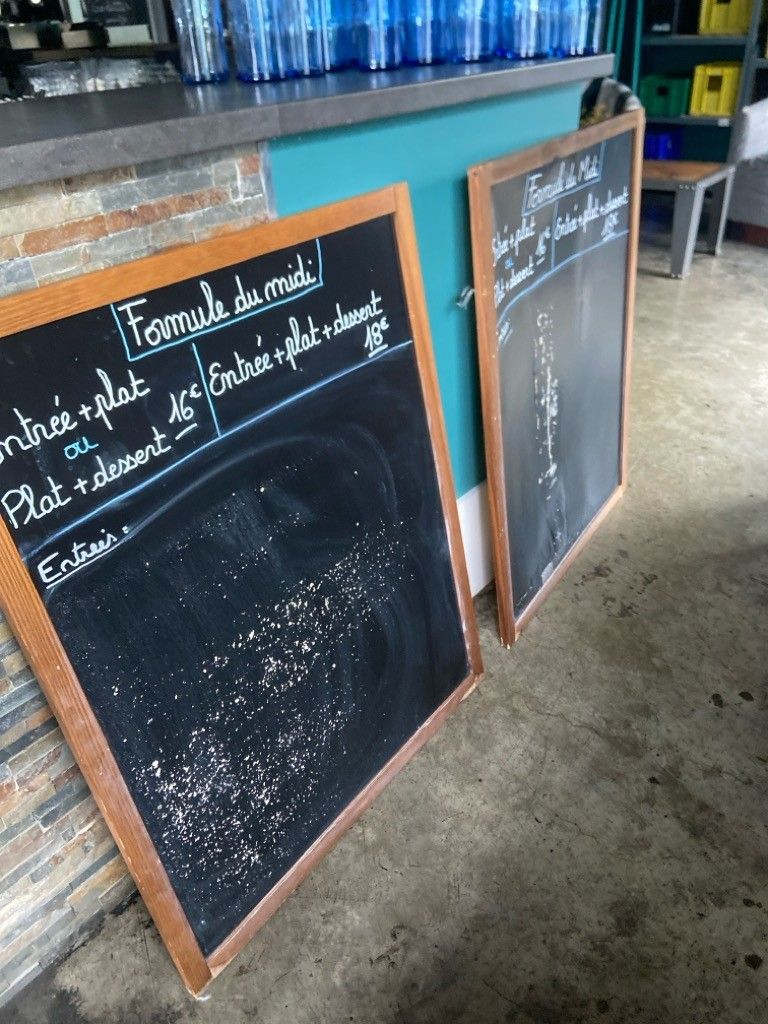 Formule du midi
ntrée + plat
ou
Plat + dessert 16€
Entrée + plat + dessert
18€
Entrées :
Formule du Midi
Entrée + plat
ou
Plat + dessert 16€
Entrée + plat + dessert
18€